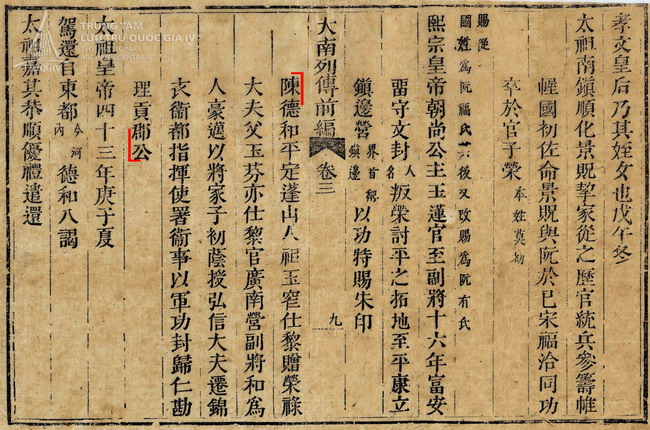 孝文皇后乃其姪女也戊午冬
太祖南鎮順化景貺挈家從之歷官統兵參籌帷
幄國初佐命景貺與阮於巳宋福洽同功
卒於官子榮 本姓莫初
賜從
國姓為阮福氏其後又改賜為阮有氏
熙宗皇帝朝尚公主玉蓮官至副將十六年富安
畱守文封 人名 叛榮討平之拓地至平康立
鎮邊營 界首稱鎮邊 以功特賜朱印
大南列傳前編 卷三 九
陳德和平定蓬山人祖玉窄仕黎贈榮祿
大夫父玉芬亦仕黎官廣南營副將和為
人豪邁以將家子初蔭授弘信大夫遷錦
衣衞都指揮使署衞事以軍功封歸仁勘
理貢郡公
太祖皇帝四十三年庚子夏
駕還自東都 今河內 德和入謁
太祖嘉其恭順優禮遣還
TRUNG TÂM
LƯU TRỮ QUỐC GIA IV
NATIONAL ARCHIVES CENTRE IV